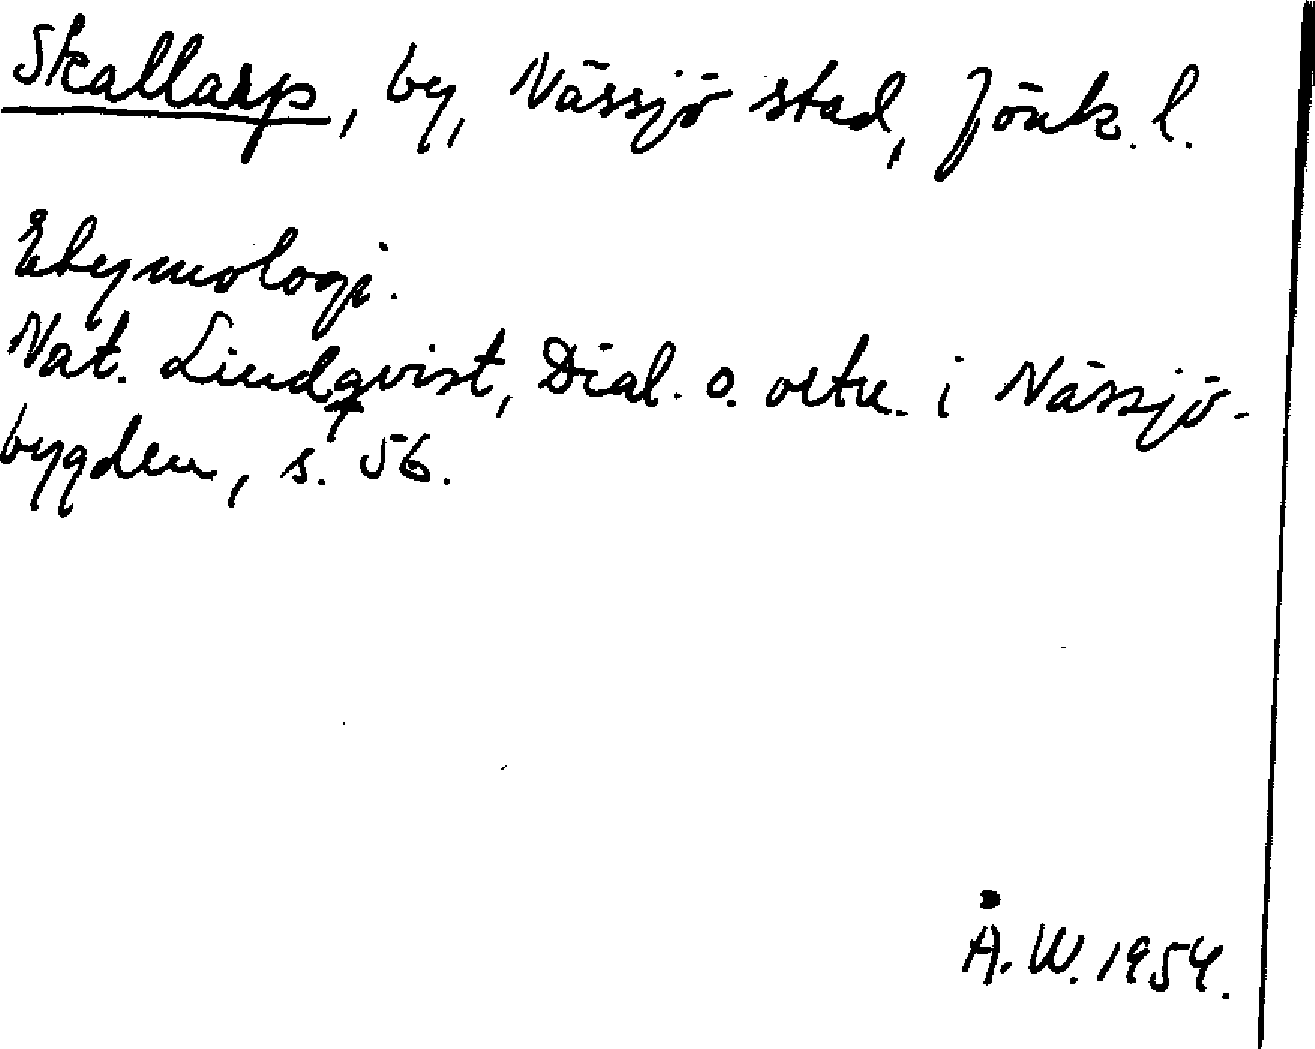 Skallarp, by, Nässjö stad, Jönk. l.
Etymologi.
Nat. Lindqvist, Dial. o. ortn. i Nässjö-
bygden, s. 56.
Å. W. 1954.